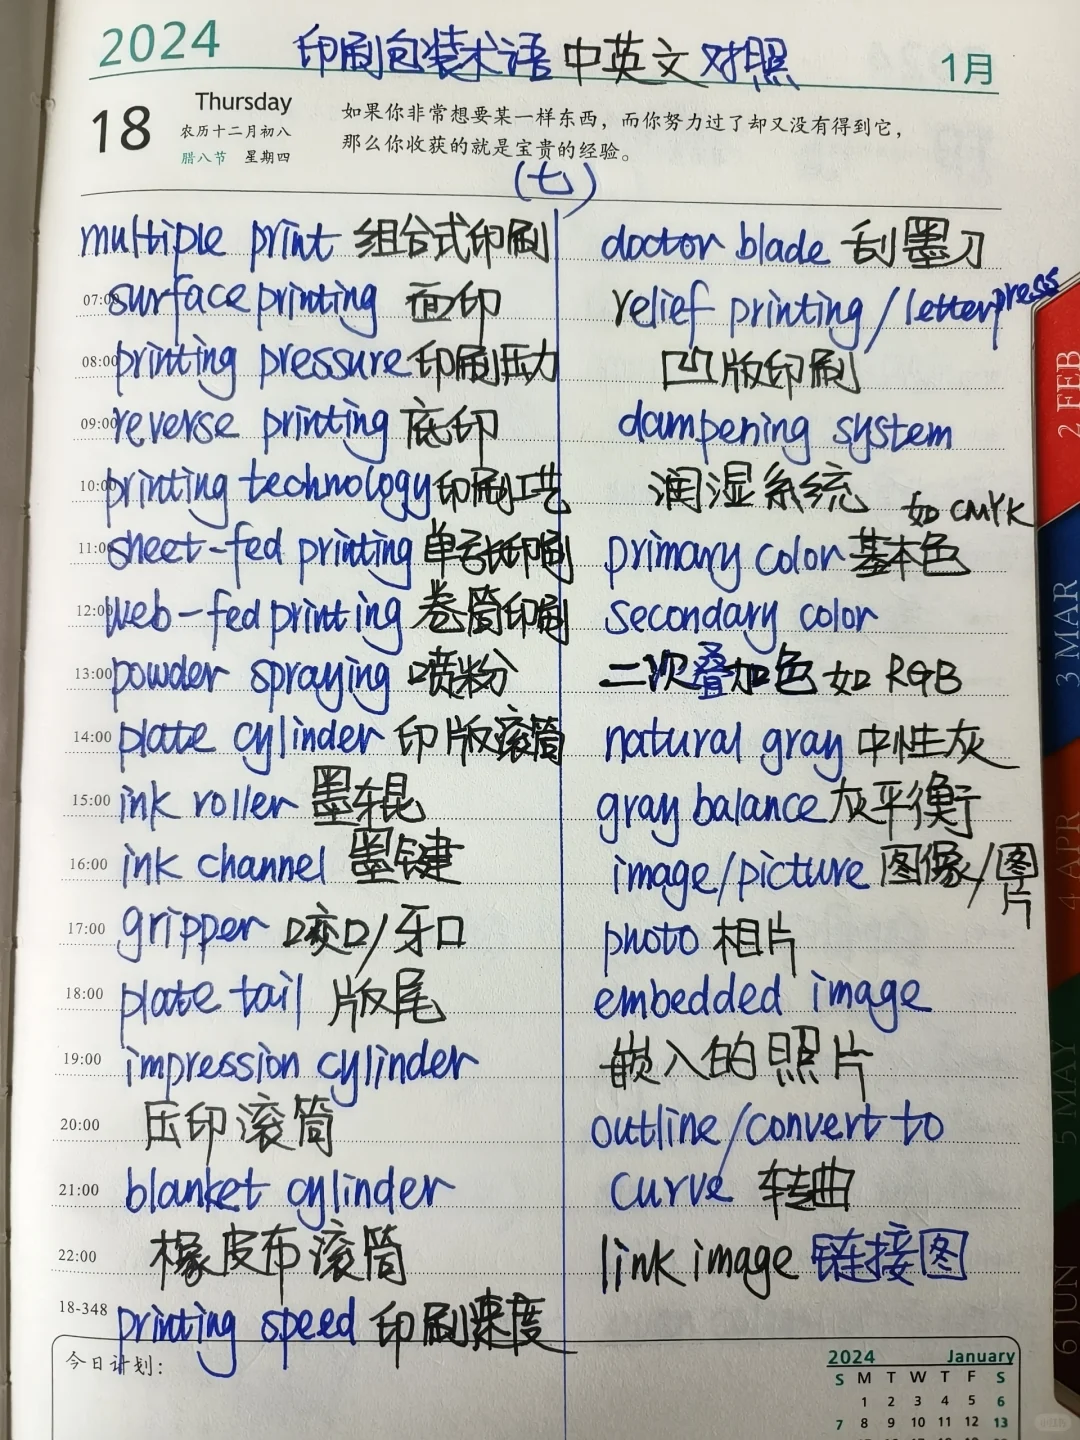 2024 印刷包装术语中英文对照 1月
18 Thursday
农历十二月初八
腊八节 星期四
如果你非常想要某一样东西，而你努力过了却又没有得到它，
那么你收获的就是宝贵的经验。
(七)
multiple print 组合式印刷
07:00 surface printing 面印
08:00 printing pressure 印刷压力
09:00 reverse printing 底印
10:00 printing technology 印刷工艺
11:00 sheet-fed printing 单张印刷
12:00 web-fed printing 卷筒印刷
13:00 powder spraying 喷粉
14:00 plate cylinder 印版滚筒
15:00 ink roller 墨辊
16:00 ink channel 墨键
17:00 gripper 咬口/牙口
18:00 plate tail 版尾
19:00 impression cylinder
20:00 压印滚筒
21:00 blanket cylinder
22:00 橡皮布滚筒
18-348 printing speed 印刷速度
doctor blade 刮墨刀
relief printing/letterpress
凹版印刷
dampening system
润湿系统
如CMYK
primary color 基本色
secondary color
二次叠加色 如RGB
natural gray 中性灰
gray balance 灰平衡
image/picture 图像/图片
photo 相片
embedded image
嵌入的照片
outline/convert to
curve 转曲
link image 链接图
今日计划:
2024 January
S M T W T F S
1 2 3 4 5 6
7 8 9 10 11 12 13
2 FEB
3 MAR
4 APR
5 MAY
6 JUN